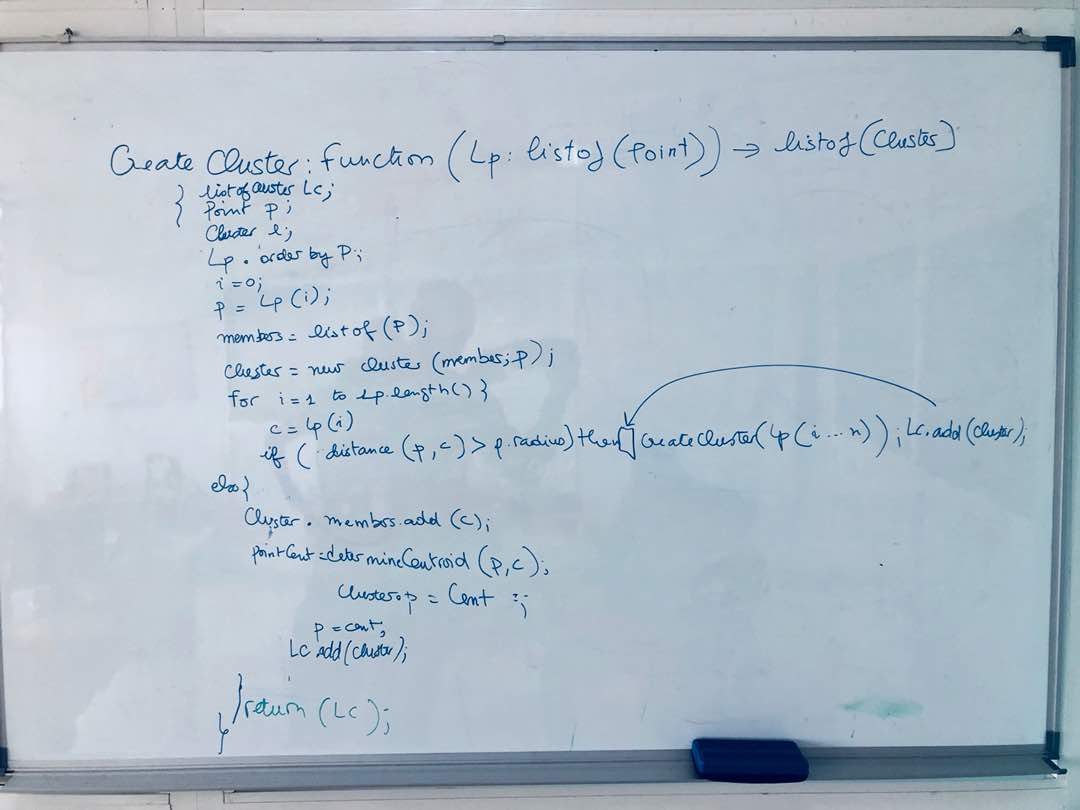 Create Cluster: function (Lp: listof(Point)) → listof(Cluster)
{ listofcluster Lc;
Point p;
Cluster l;
Lp. order by P;
i=0;
p = Lp(i);
members = listof(P);
Cluster = new cluster (member; p);
for i=1 to Lp.length() }
c = Lp(i)
if (distance (p, c) > p.radius) then CreateCluster(Lp(i...n)); Lc.add(cluster);
else {
Cluster. members.add (c);
pointCent = determineCentroid (p, c);
Cluster.p = Cent ;
p = cent;
Lc add (cluster);
} return (Lc);
}